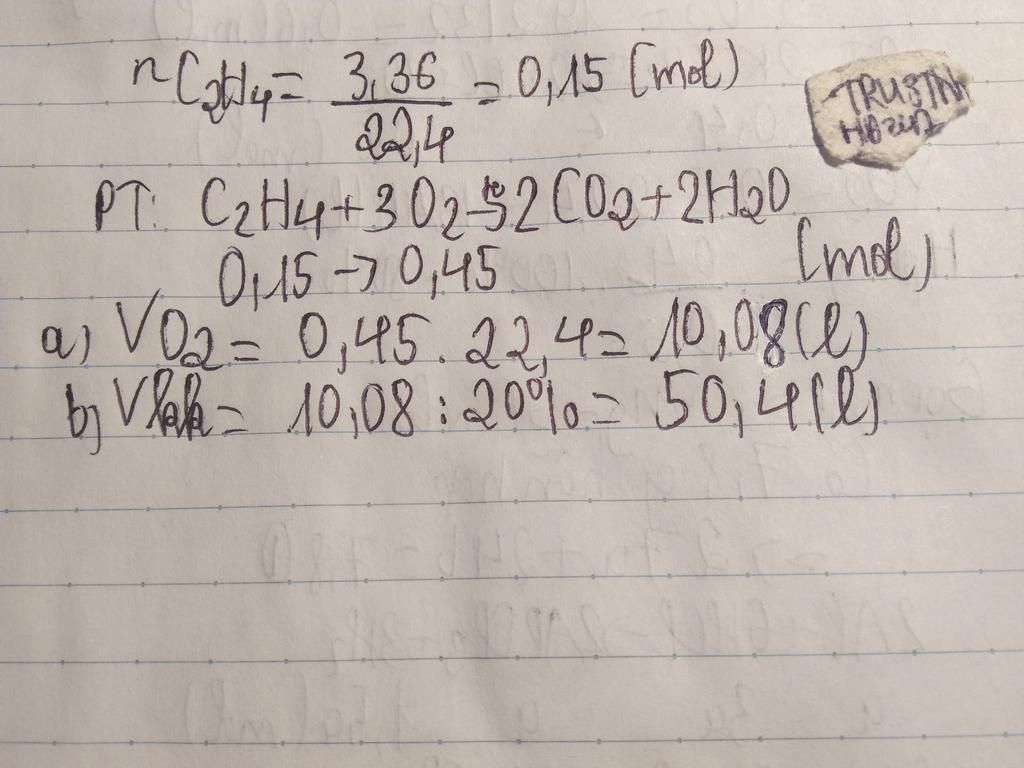 nC2H4 = 3,36 / 22,4 = 0,15 (mol)
PT: C2H4 + 3O2 -to-> 2CO2 + 2H2O
0,15 -> 0,45 (mol)
a) VO2 = 0,45 . 22,4 = 10,08 (l)
b) Vkk = 10,08 : 20% = 50,4 (l)